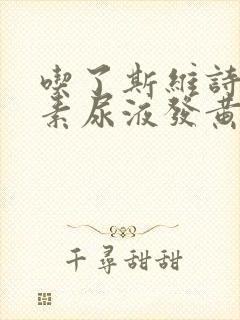 喫了斯維詩
素尿液發黃
千尋甜甜